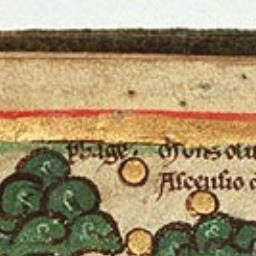 phage. Mons oliu
Ascensio d